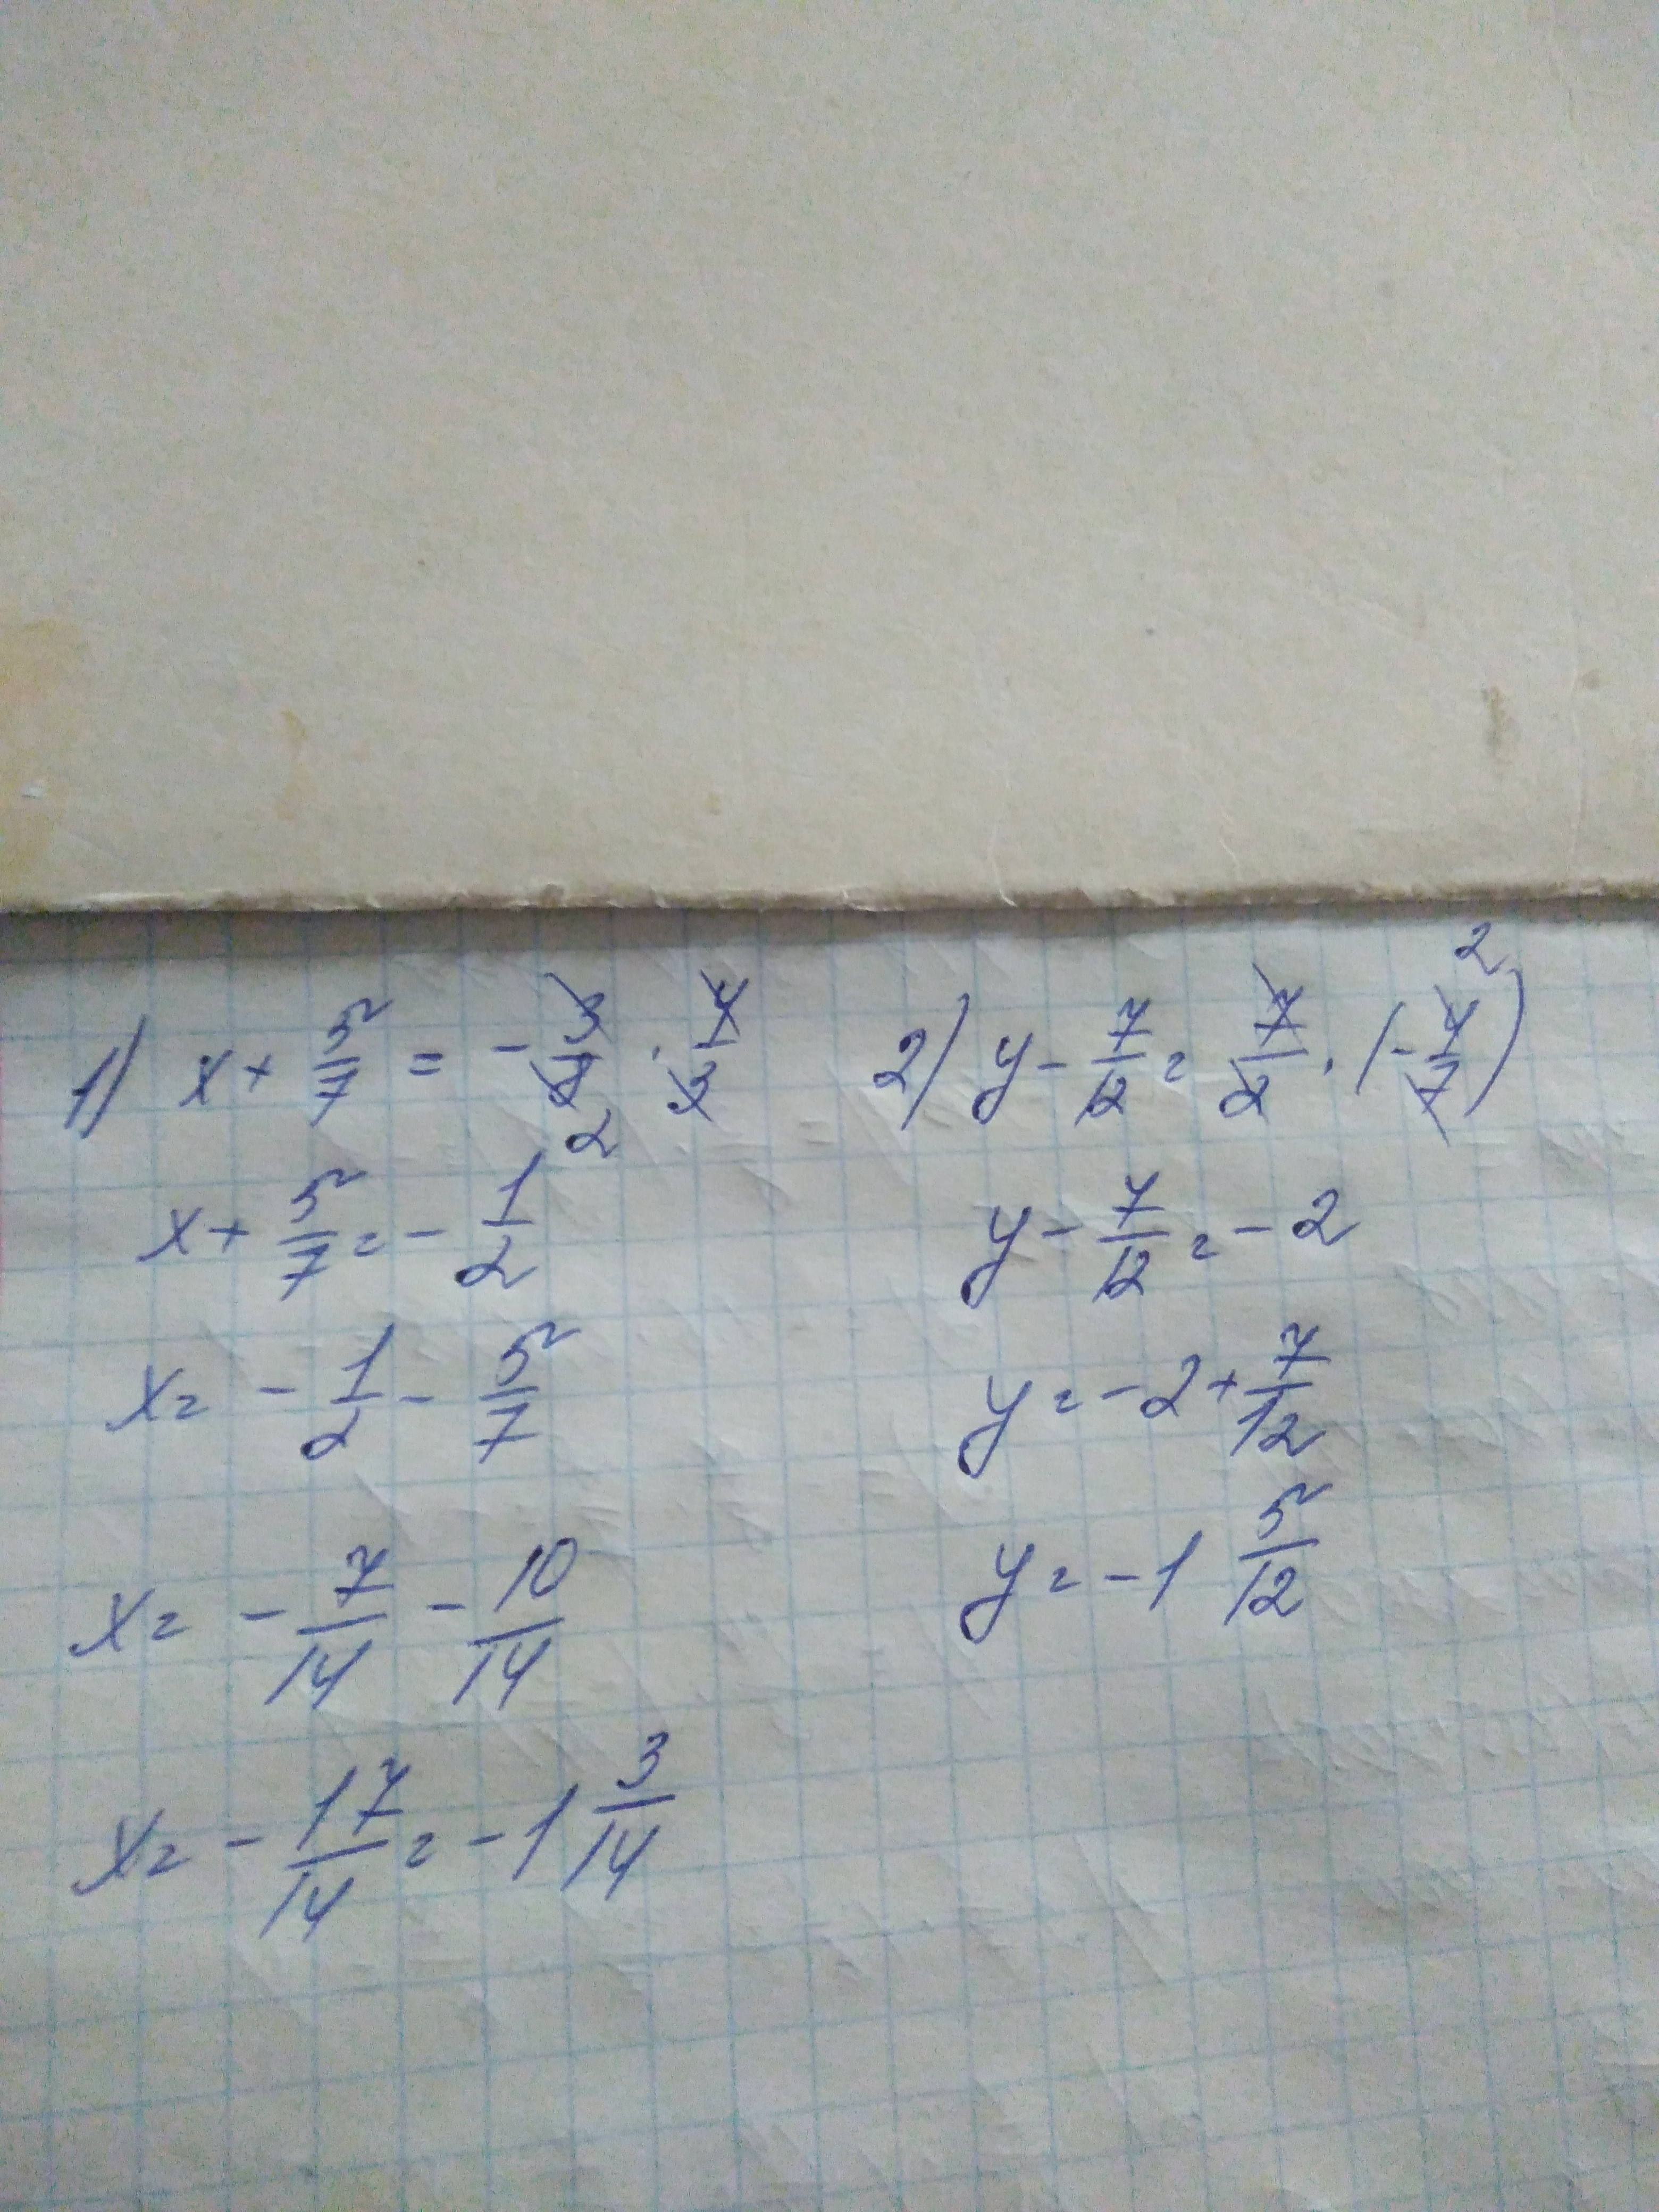 1) x + 5/7 = - 3/8 · 4/3
x + 5/7 = - 1/2
x = - 1/2 - 5/7
x = - 7/14 - 10/14
x = - 17/14 = - 1 3/14
2) y - 7/12 = 7/2 · (- 4/7)
y - 7/12 = - 2
y = - 2 + 7/12
y = - 1 5/12